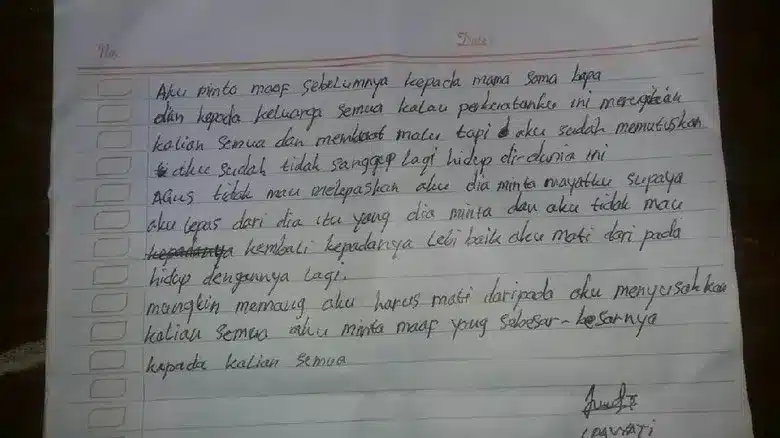 No.
Date:
Aku minta maaf sebelumnya kepada mama sama bapa
dan kepada keluarga semua kalau perbuatanku ini merugikan
kalian semua dan membuat malu tapi aku sudah memutuskan
aku sudah tidak sanggup lagi hidup di-dunia ini
Agus tidak mau melepaskan aku dia minta mayatku supaya
aku lepas dari dia itu yang dia minta dan aku tidak mau
kepadanya kembali kepadanya lebi baik aku mati dari pada
hidup dengannya lagi.
mungkin memang aku harus mati daripada aku menyusahkan
kalian semua aku minta maaf yang sebesar-besarnya
kepada kalian semua